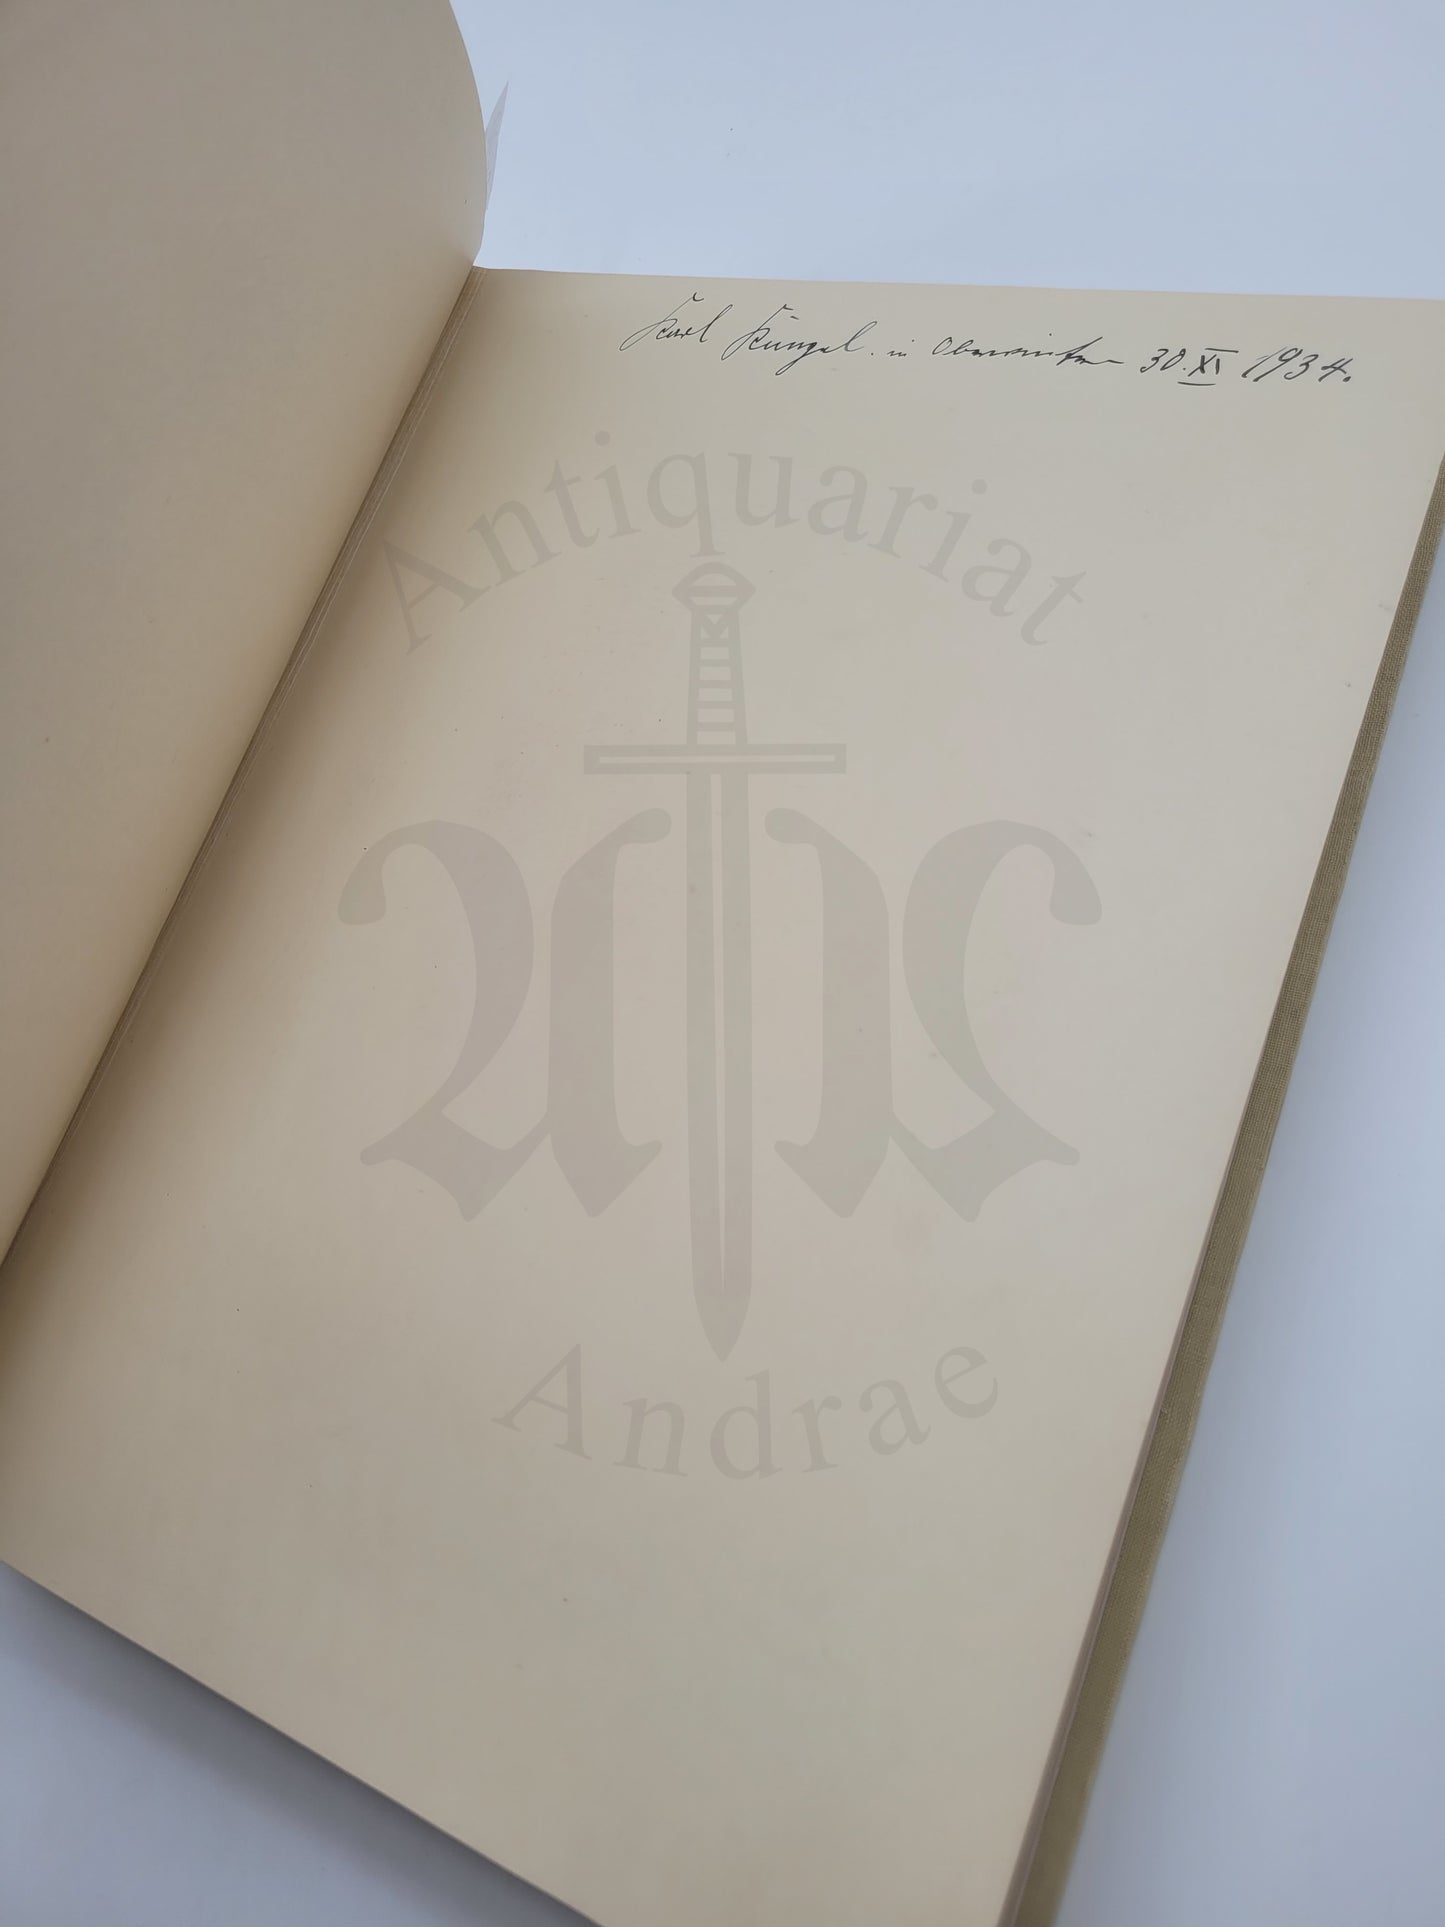 Karl Küngel. in Oberwinter 30. XI 1934.
Antiquariat
Andrae